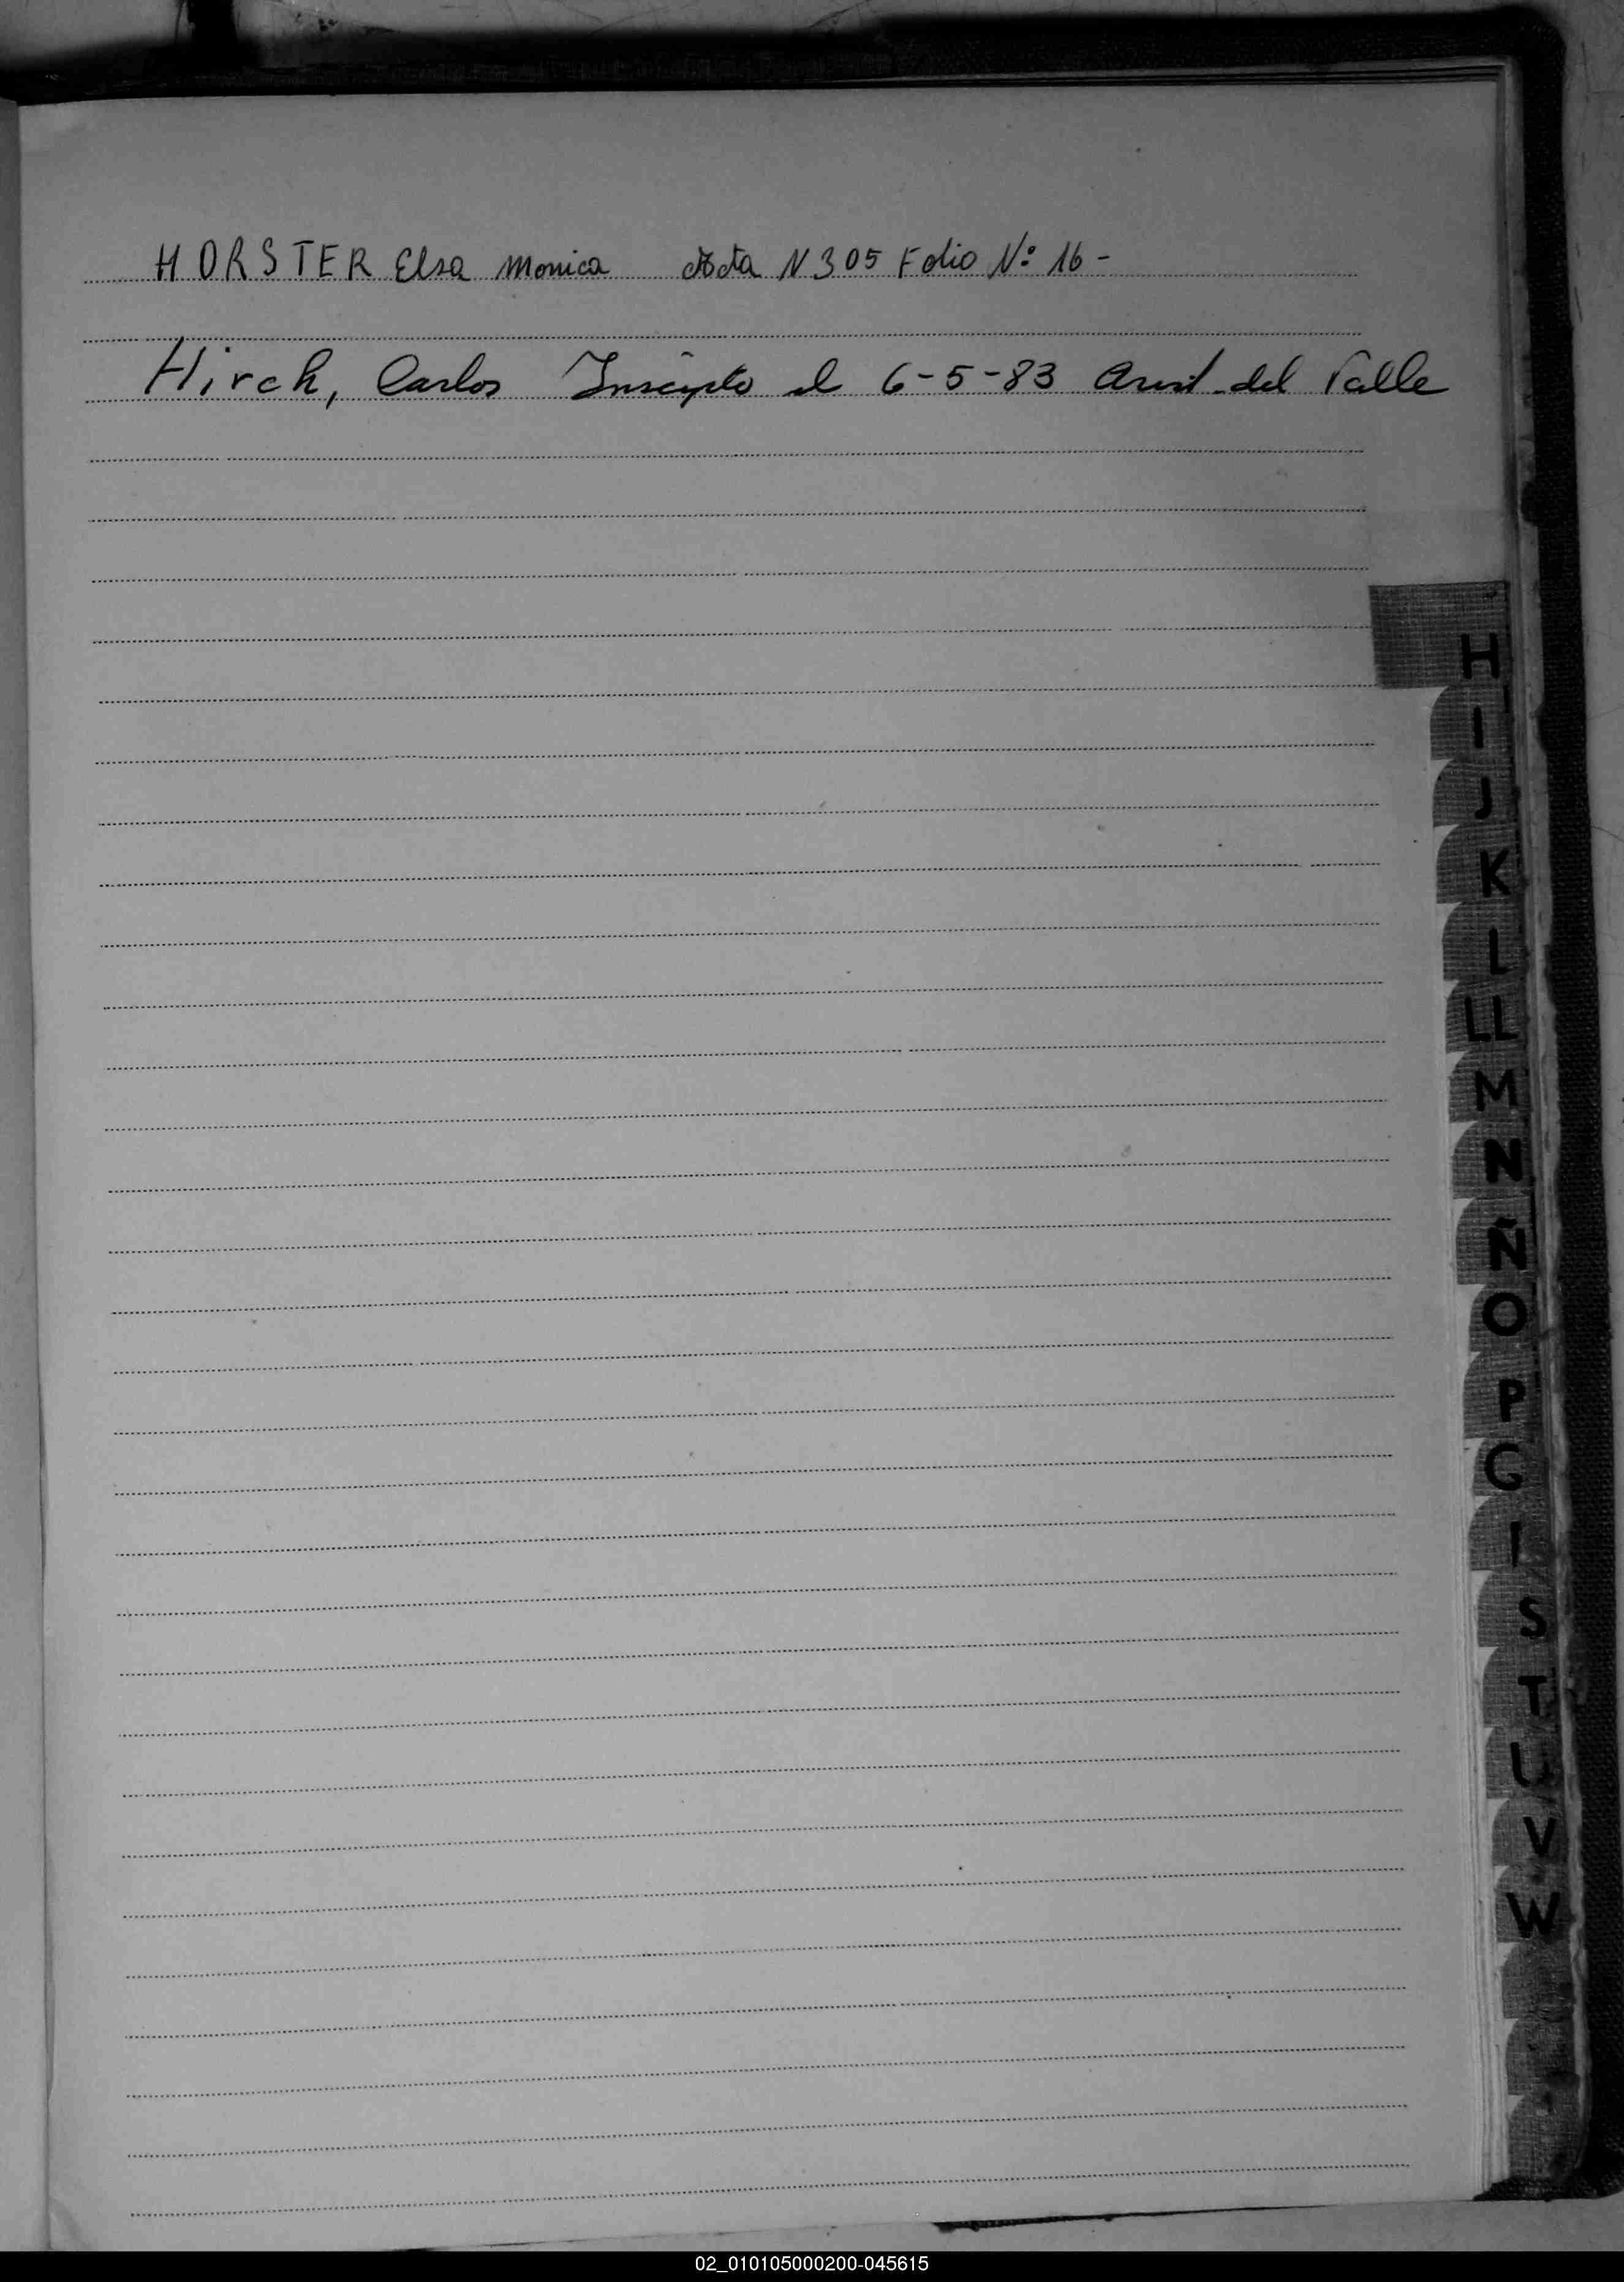 HORSTER Elsa Monica Acta N 305 Folio Nº 16 -
Hirch, Carlos Inscripto el 6-5-83 del Valle
H
I
J
K
L
LL
M
N
Ñ
O
P
S
T
U
V
W
02_010105000200-045615